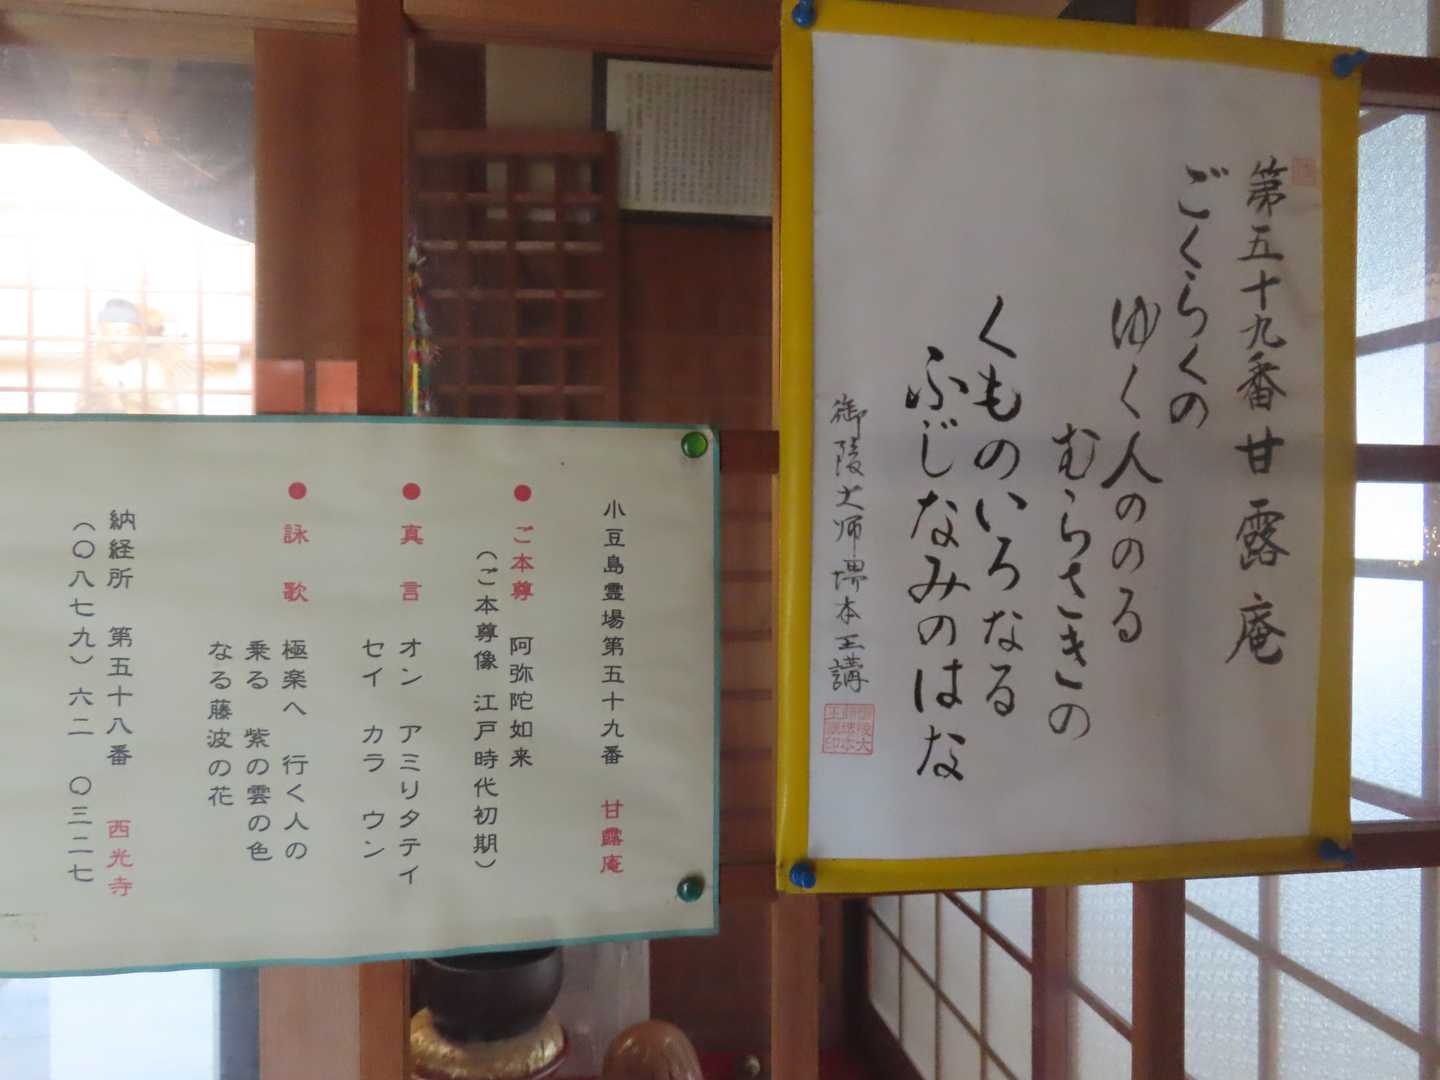 第五十九番甘露庵
ごくらくの
ゆく人ののる
むらさきの
くものいろなる
ふじなみのはな
御陵大師堺本王講
小豆島霊場第五十九番 甘露庵
●ご本尊 阿弥陀如来
（ご本尊像 江戸時代初期）
●真言 オン アミリタテイ
セイ カラ ウン
●詠歌 極楽へ 行く人の
乗る 紫の雲の色
なる藤波の花
納経所 第五十八番 西光寺
（〇八七九）六二 〇三二七